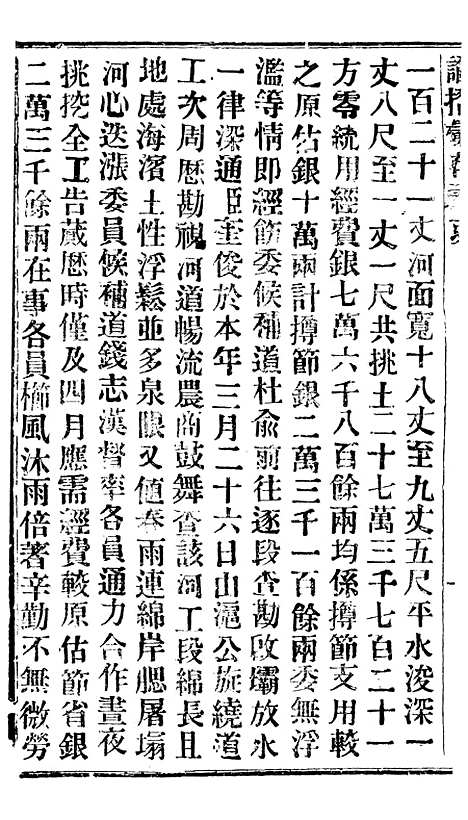 諭摺彙存
一百二十一丈河面寬十八丈至九丈五尺平水浚深一
丈八尺至一丈一尺共挑土二十七萬三千七百二十一
方零統用經費銀七萬六千八百餘兩均係撙節支用較
之原估銀十萬兩計撙節銀二萬三千一百餘兩委無浮
濫等情即經飭委候補道杜俞前往逐段查勘啟壩放水
一律深通經奎俊於本年三月二十六日由滬公旋繞道
工次周歷勘視河道暢流農商鼓舞查該河工段綿長且
地處海濱土性浮鬆並多泉眼又值春雨連綿岸腮屠塌
河心迭漲委員候補道錢志漢督率各員通力合作晝夜
挑挖全工告蕆歷時僅及四月應需經費較原估節省銀
二萬三千餘兩在事各員櫛風沐雨倍著辛勤不無微勞